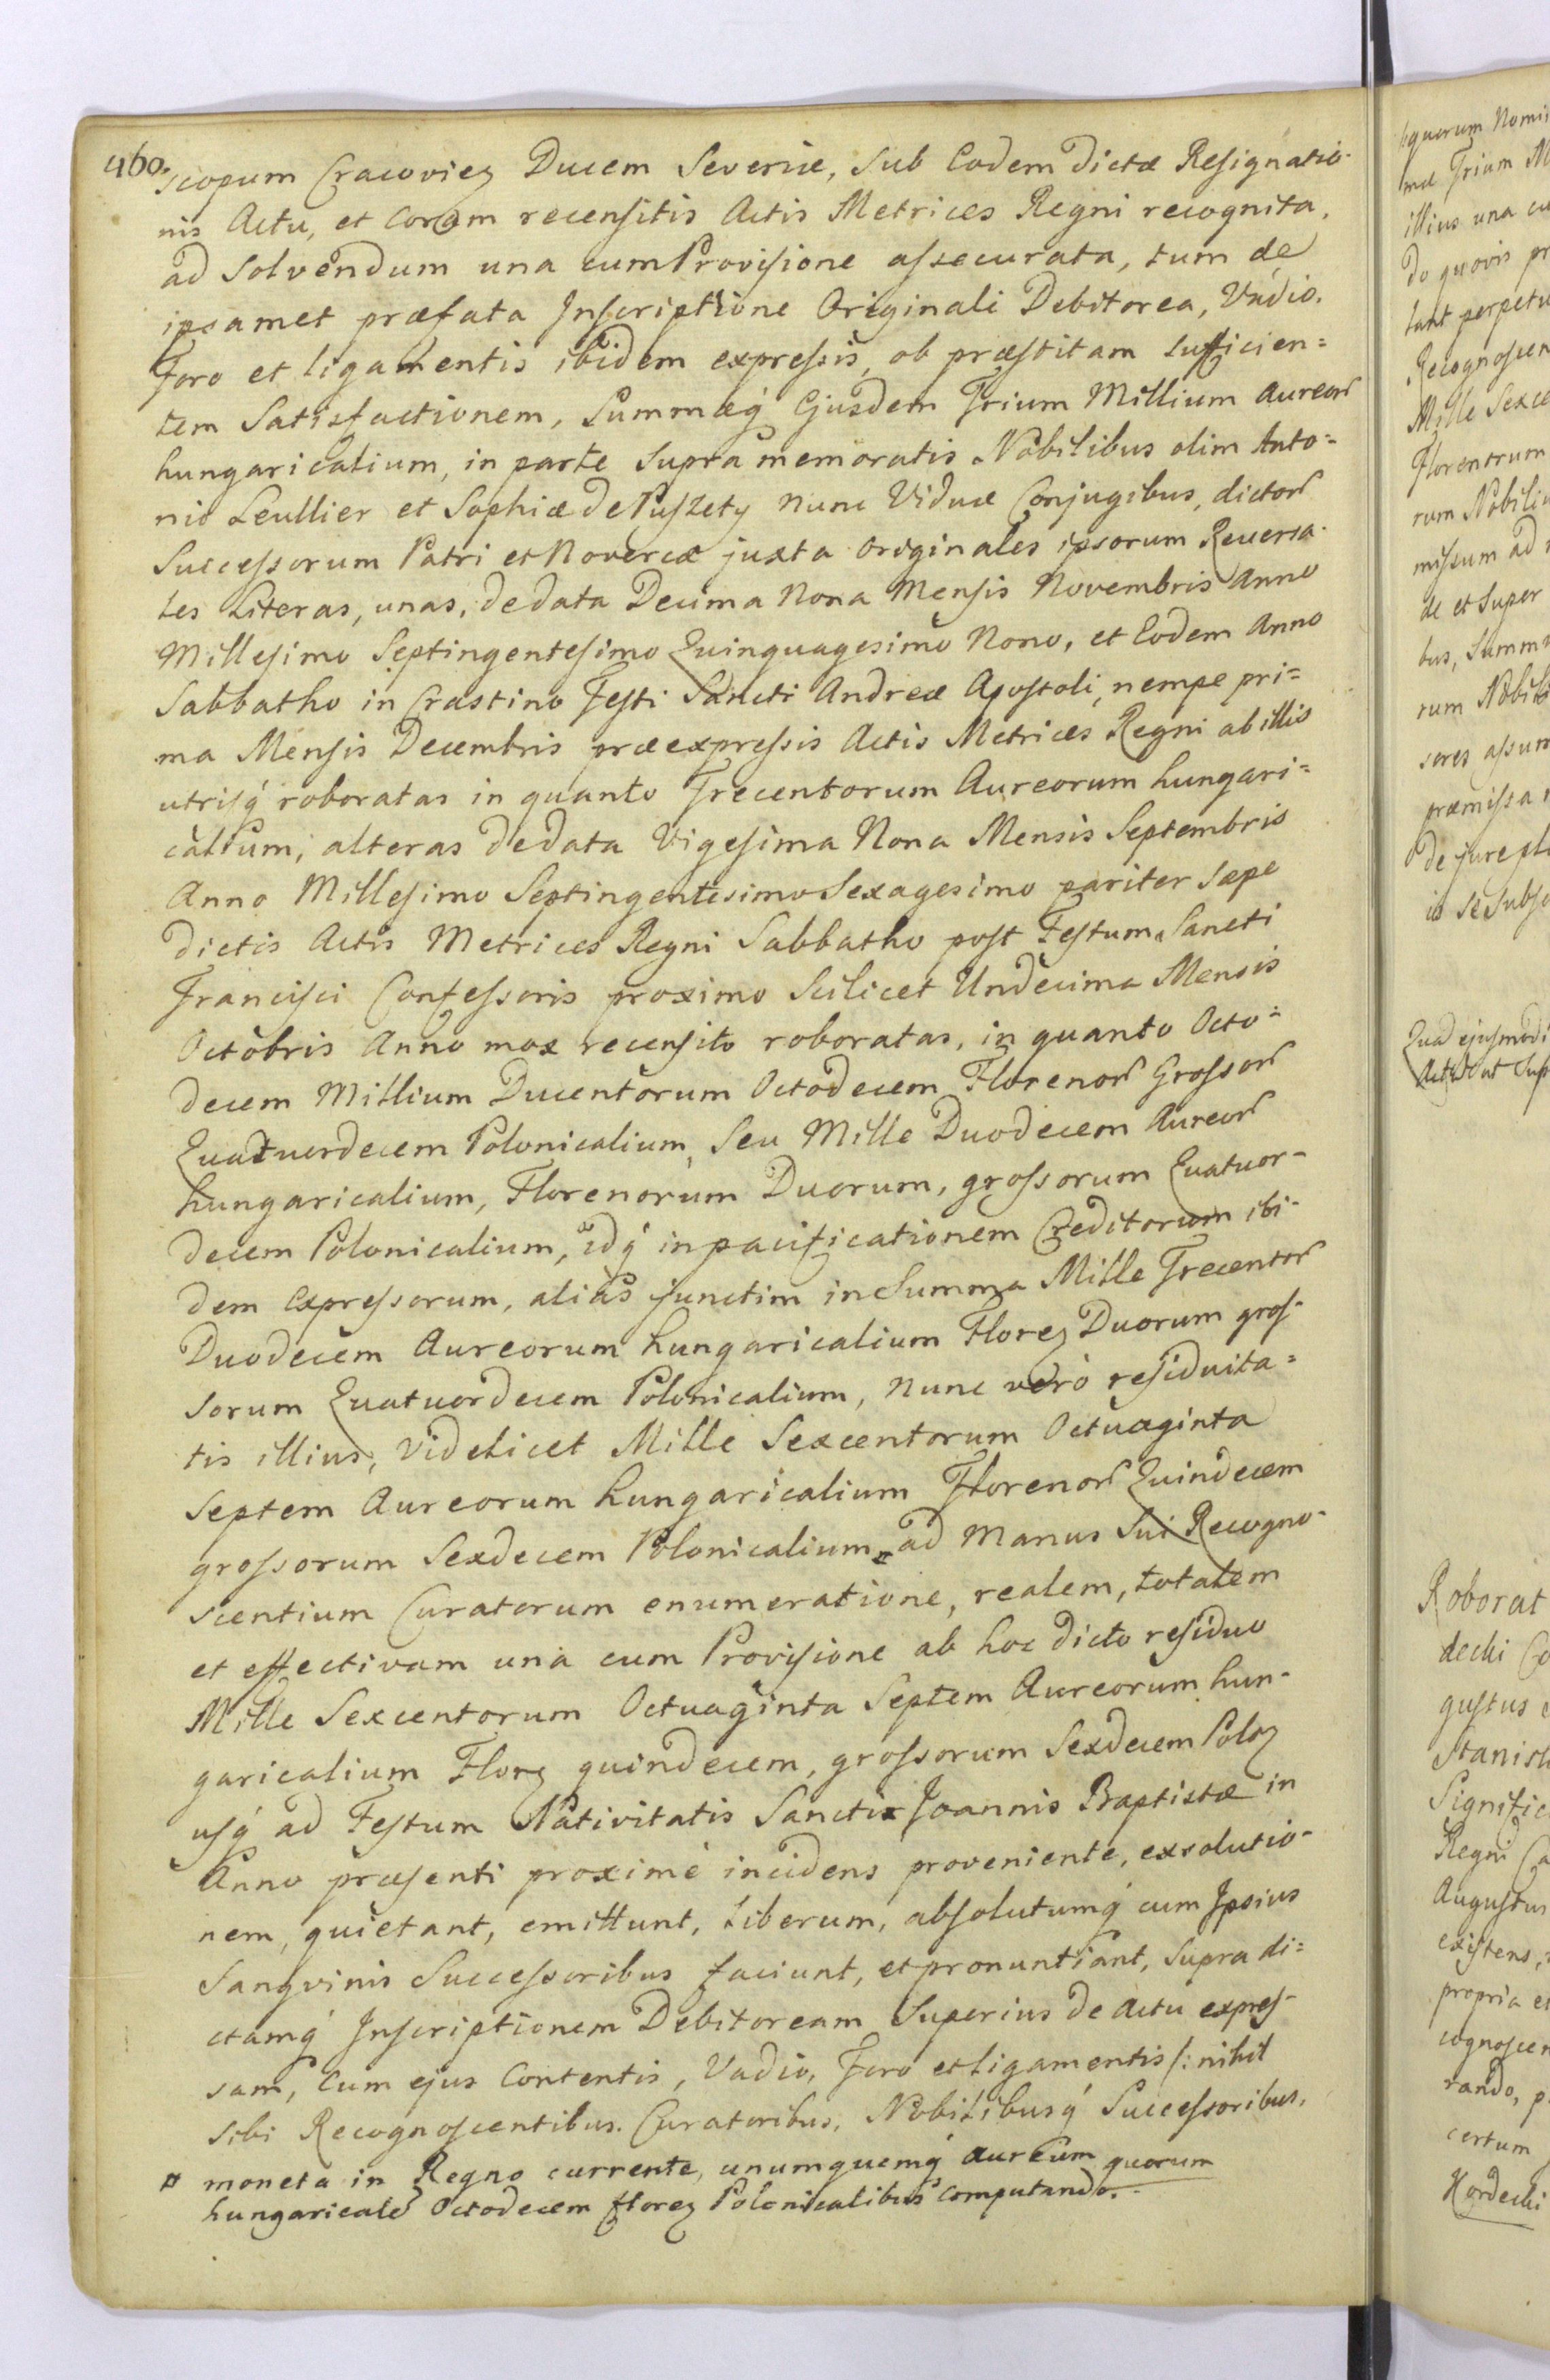 460.
scopum Cracovien Ducem Severiæ, Sub Eodem dictæ Resignatio-
nis Actu, et Coram recensitis Actis Metrices Regni recognita,
ad Solvendum una cum Provisione assecurata, tum de
ipsamet præfata Inscriptione Originali Debitorea, Vadio,
Foro et ligamentis ibidem expressis, ob præstitam Sufficien=
tem Satisfactionem, Summæq́ Ejusdem Trium Millium Aureor
hungaricalium, in parte Supra memoratis Nobilibus olim Anto=
nio Leullier et Sophiæ de Puszety nunc Viduæ Conjugibus, dictor
Successorum Patri et Novercæ juxta Originales ipsorum Reversa-
les Literas, unas, de data Decima Nona Mensis Novembris Anno
Millesimo Septingentesimo Quinquagesimo Nono, et Eodem Anno
Sabbatho in Crastino Festi Sancti Andreæ Apostoli, nempe pri=
ma Mensis Decembris præexpressis Actis Metrices Regni ab illis
utrisq́ roboratas in quanto Trecentorum Aureorum hungari=
calium, alteras de data Vigesima Nona Mensis Septembris
Anno Millesimo Septingentesimo Sexagesimo pariter sæpe
dictis Actis Metrices Regni Sabbatho post Festum Sancti
Francisci Confessoris proximo Scilicet Undecima Mensis
Octobris Anno mox recensito roboratas, in quanto Octo=
decem Millium Ducentorum Octodecem Florenor Grossor
Quatuordecem Polonicalium, Seu Mille Duodecem Aureor
hungaricalium, Florenorum Duorum, grossorum Quatuor-
decem Polonicalium, idq́ in pacificationem Creditorum ibi-
dem Expressorum, alias junctim in Summa Mille Trecentor
Duodecem Aureorum hungaricalium Floren Duorum gros-
sorum Quatuordecem Polonicalium, nunc verò residuita=
tis illius, Videlicet Mille Sexcentorum Octuaginta
Septem Aureorum hungaricalium Florenor Quindecem
grossorum Sexdecem Polonicalium ¤ ad Manus Sui Recogno-
scentium Curatorum enumeratione, realem, totalem
et effectivam unà cum Provisione ab hoc dicto residuo
Mille Sexcentorum Octuaginta Septem Aureorum hun-
garicalium Floren quindecem, grossorum Sexdecem Polon
usq́ ad Festum Nativitatis Sancti Joannis Baptistæ in
Anno præsenti proximè incidens proveniente, exsolutio-
nem, quietant, emittunt, Liberum, absolutumq́ cum Ipsius
Sangvinis Successoribus faciunt, et pronuntiant, Supra di=
ctamq́ Inscriptionem Debitoream Superius de Actu expres-
sam, Cum ejus Contentis, Vadio, Foro et Ligamentis /: nihil
Sibi Recognoscentibus Curatoribus, Nobilibusq́ Successoribus,
¤ moneta in Regno currente, unumquemq́ aureum quorum
hungaricale Octodecem floren Polonicalibus computando.
quorum Nomi
mæ Trium M
illius una cu
do quovis pr
tant perpetu
Recognoscen
Mille Sexce
Florenorum
rum Nobiliu
missum ad
de et Super
bus, Summ
rum Nobili
sores assum
præmissa
de jure pl
io se subsc
Quod ejusmodi
Roborat
decki Co
gustus
Stanisl
Signific
Regni Ca
Augustus
existens,
propria et
cognoscen
rando, p
certum
Kordecki